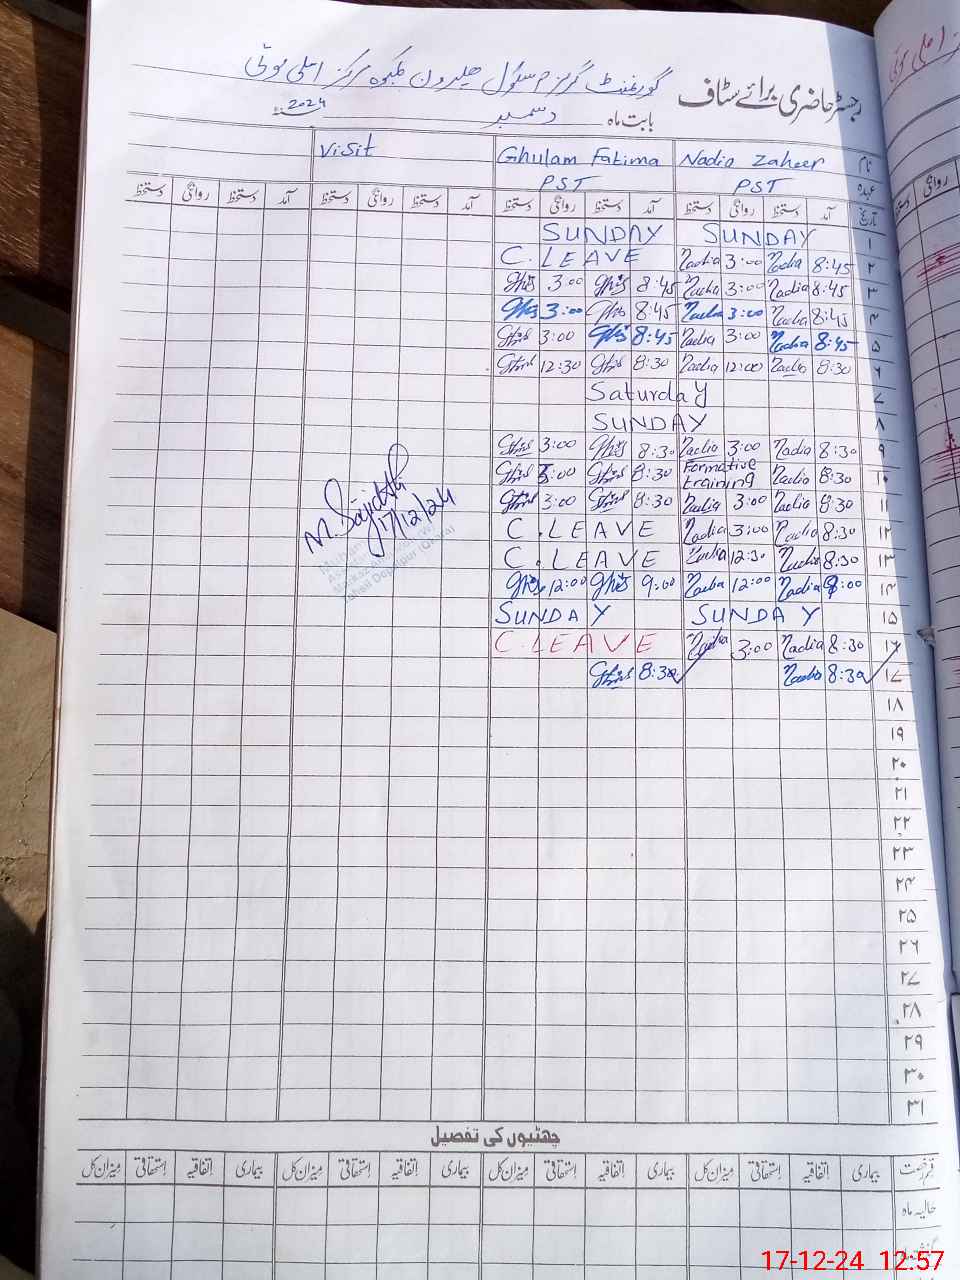 رجسٹر حاضری برائے سٹاف گورنمنٹ گرلز
بابت ماہ دسمبر 2024
نام Nadia Zaheer Ghulam Fatima Visit
عہدہ PST PST
تاریخ آمد دستخط روانگی دستخط آمد دستخط روانگی دستخط آمد دستخط روانگی دستخط آمد دستخط روانگی دستخط
۱ SUNDAY SUNDAY
۲ 8:45 Nadia 3:00 Nadia C.LEAVE
۳ 8:45 Nadia 3:00 Nadia 8:45 3:00
۴ 8:45 Nadia 3:00 Nadia 8:45 3:00
۵ 8:45 Nadia 3:00 Nadia 8:45 3:00
۶ 8:30 Nadia 12:00 Nadia 8:30 12:30
۷ Saturday
۸ SUNDAY
۹ 8:30 Nadia 3:00 Nadia 8:30 3:00
۱۰ 8:30 Nadia Formative training 8:30 3:00
۱۱ 8:30 Nadia 3:00 Nadia 8:30 3:00
۱۲ 8:30 Nadia 3:00 Nadia C.LEAVE
۱۳ 8:30 Nadia 12:30 Nadia C.LEAVE
۱۴ 9:00 Nadia 12:00 Nadia 9:00 12:00
۱۵ SUNDAY SUNDAY
۱۶ 8:30 Nadia 3:00 Nadia C.LEAVE
۱۷ 8:30 Nadia 8:30
M. Sajid
17/12/24
۱۸
۱۹
۲۰
۲۱
۲۲
۲۳
۲۴
۲۵
۲۶
۲۷
۲۸
۲۹
۳۰
۳۱
چھٹیوں کی تفصیل
قسم رخصت بیماری اتفاقیہ استحقاقی میزان کل بیماری اتفاقیہ استحقاقی میزان کل بیماری اتفاقیہ استحقاقی میزان کل بیماری اتفاقیہ استحقاقی میزان کل
حالیہ ماہ
17-12-24 12:57